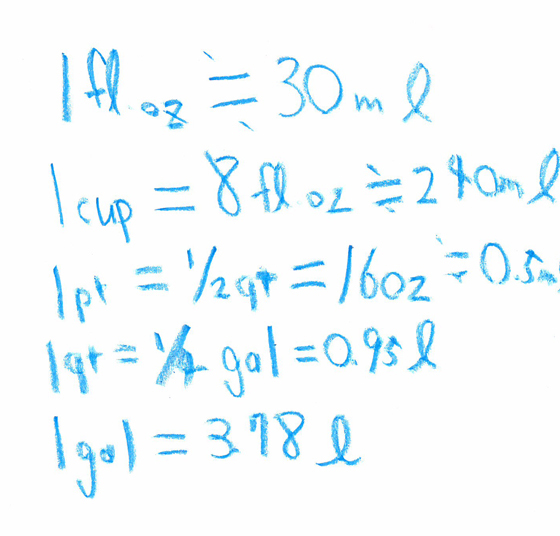 1 fl. oz ≒ 30 ml
1 cup = 8 fl. oz ≒ 240ml
1 pt = 1/2 qt = 16 oz ≒ 0.5m
1 qt = 1/4 gal = 0.95 l
1 gal = 3.78 l